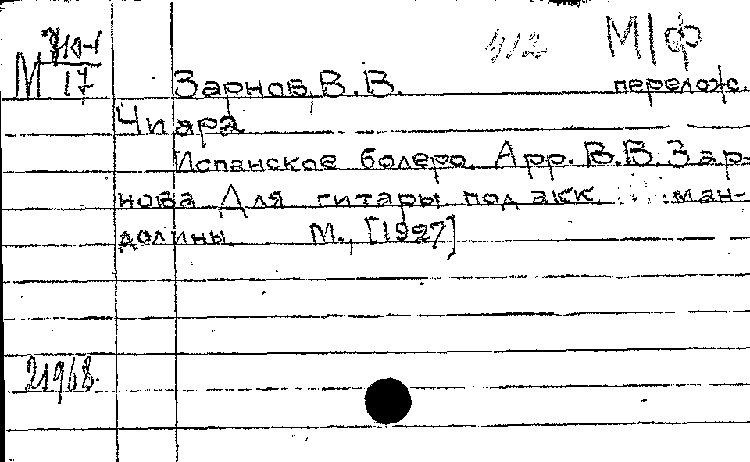 412 М/ф
М 17
Зарнов, В.В. перелож.
Чиара
Испанское болеро. Арр. В.В. Зар-
нова Для гитары под акк. ман-
долины М., [1927]
21968